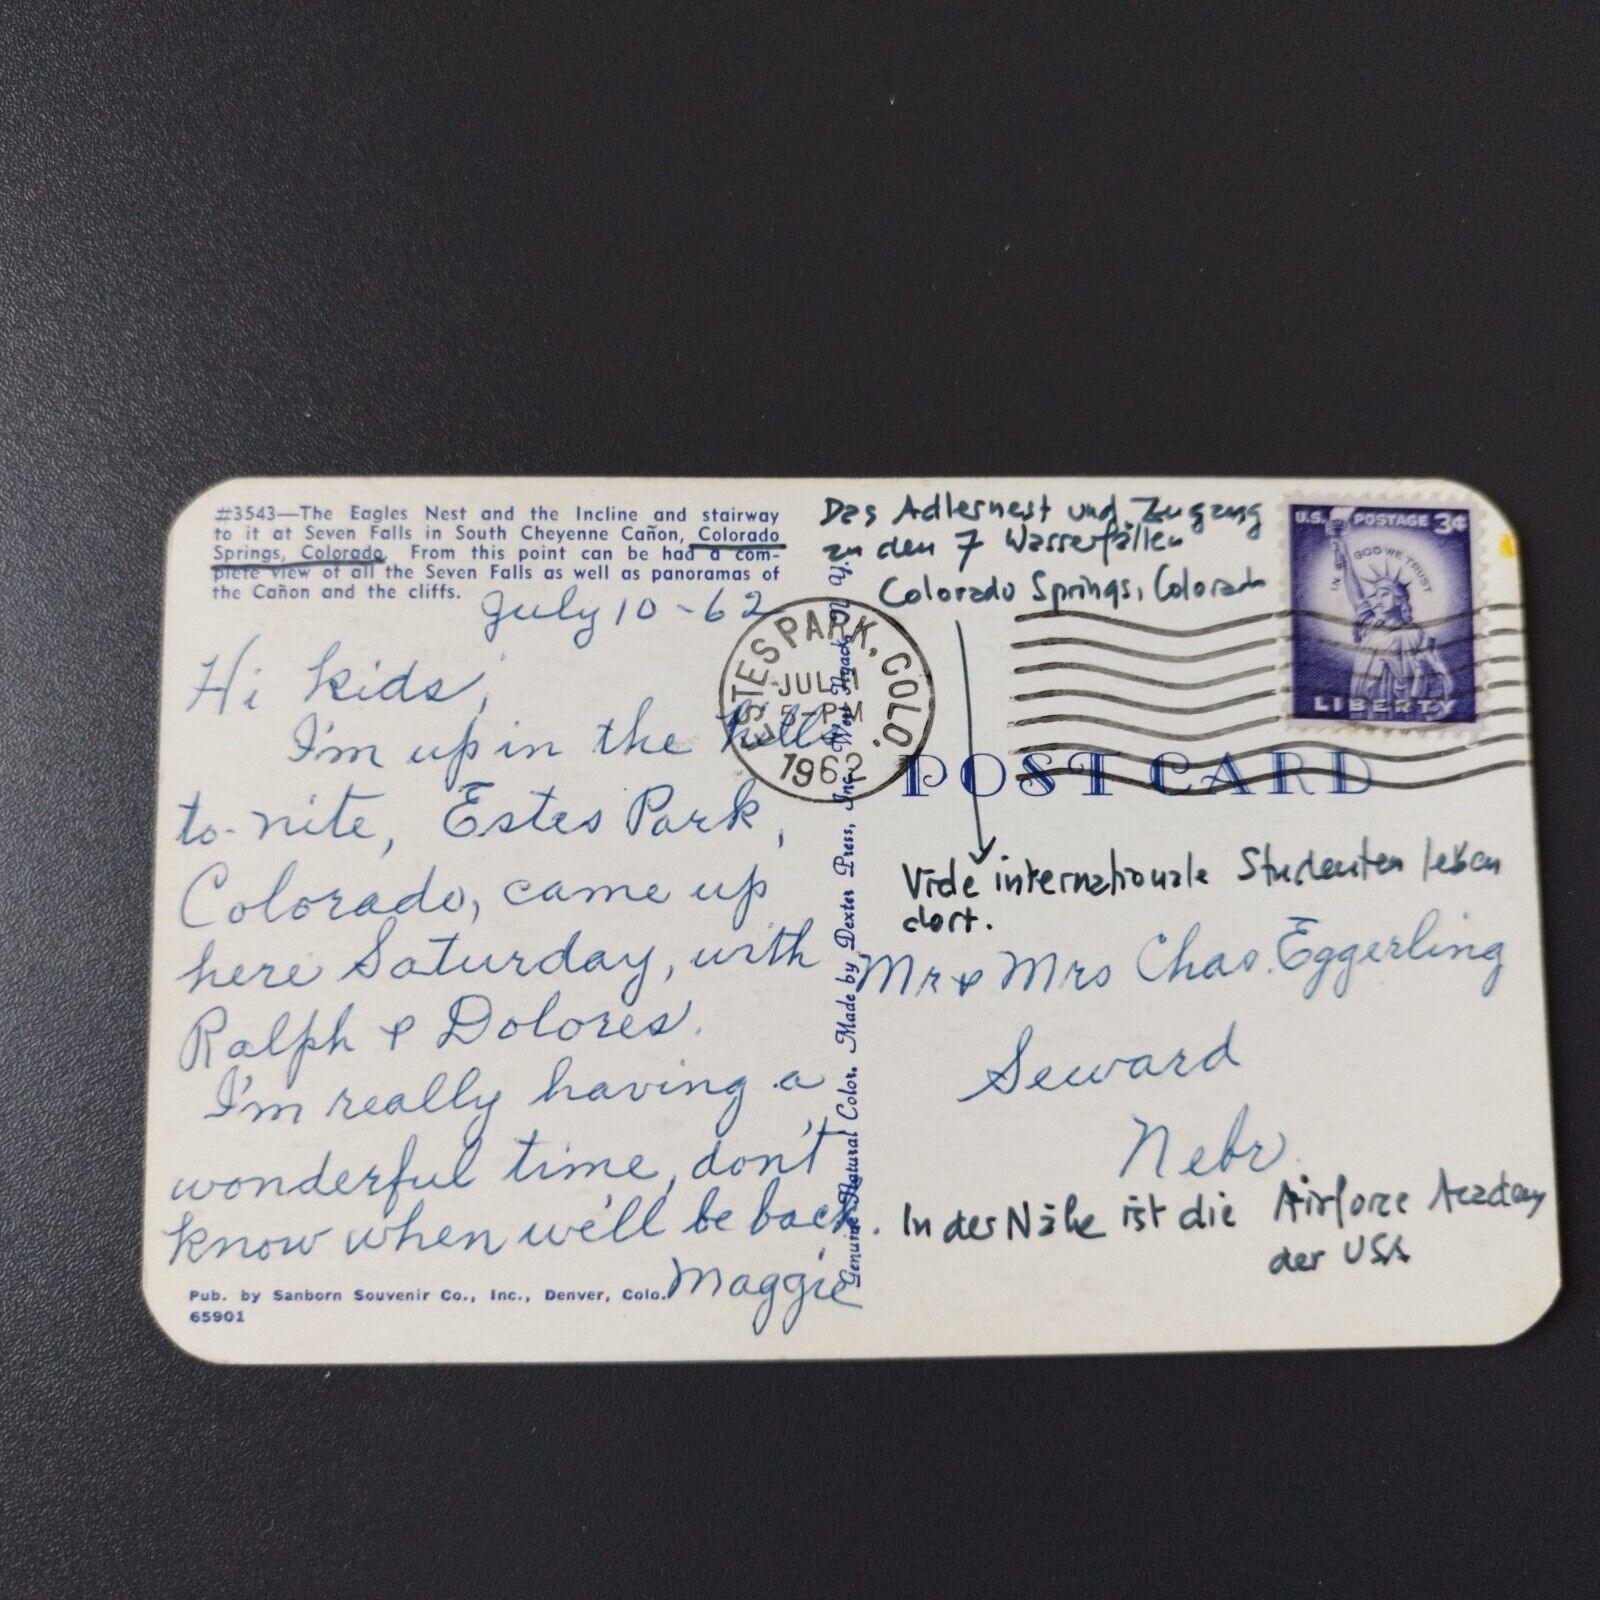 #3543—The Eagles Nest and the Incline and stairway
to it at Seven Falls in South Cheyenne Cañon, Colorado
Springs, Colorado. From this point can be had a com-
plete view of all the Seven Falls as well as panoramas of
the Cañon and the cliffs.
July 10-62
Hi kids,
I'm up in the hills
to-nite, Estes Park,
Colorado, came up
here Saturday, with
Ralph & Dolores.
I'm really having a
wonderful time, don't
know when we'll be back.
Maggie
Pub. by Sanborn Souvenir Co., Inc., Denver, Colo.
65901
Genuine Natural Color. Made by Dexter Press, Inc. West Nyack, N.Y.
ESTES PARK, COLO.
JUL 11
5-PM
1962
Das Adlernest und Zugang
zu den 7 Wasserfällen
Colorado Springs, Colorado
U.S. POSTAGE 3¢
IN GOD WE TRUST
LIBERTY
POST CARD
Viele internationale Studenten leben
dort.
Mr & Mrs Chas. Eggerling
Seward
Nebr.
In der Nähe ist die Airforce Academy
der USA